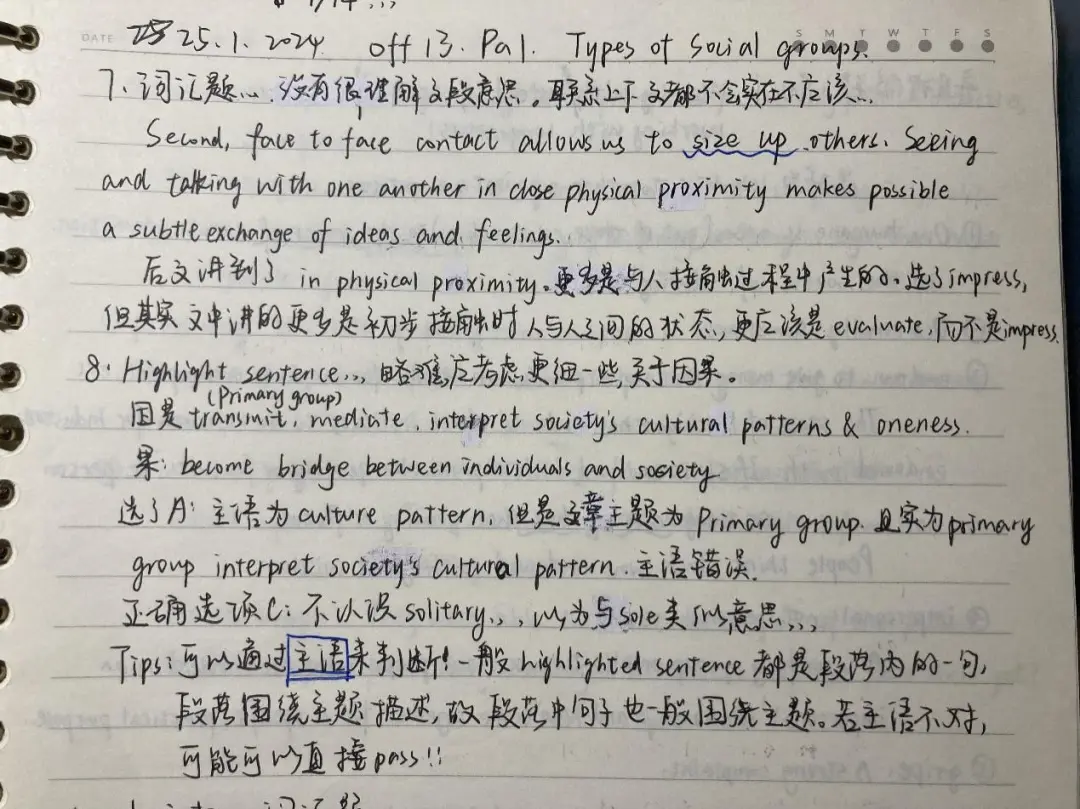 DATE 25.1.2024 Off 13. Pa1. Types of social groups.
S M T W T F S
7、词汇题... 没有很理解文段意思。联系上下文都不会实在不应该...
Second, face to face contact allows us to size up others. Seeing
and talking with one another in close physical proximity makes possible
a subtle exchange of ideas and feelings..
后文讲到了 in physical proximity。更多是与人接触过程中产生的。选了impress,
但其实文中讲的更多是初步接触时人与人之间的状态,更应该是evaluate,而不是impress.
8. Highlight sentence... 略难,应考虑更细一些,关于因果。
(Primary group)
因是 transmit, mediate, interpret society's cultural patterns & oneness.
果: become bridge between individuals and society
选了A: 主语为culture pattern, 但是文章主题为Primary group. 且实为primary
group interpret society's cultural pattern. 主语错误.
正确选项C: 不认识solitary... 以为与sole类似意思...
Tips: 可以通过主语来判断! 一般highlighted sentence都是段落内的一句,
段落围绕主题描述,故段落中句子也一般围绕主题。若主语不对,
可能可以直接pass!!